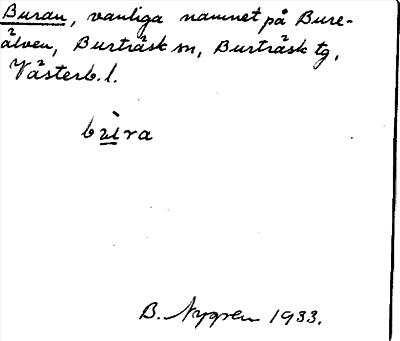 Buran, vanliga namnet på Bure-
älven, Burträsk sn, Burträsk tg,
Västerb. l.
bùra
B. Nygren 1933.